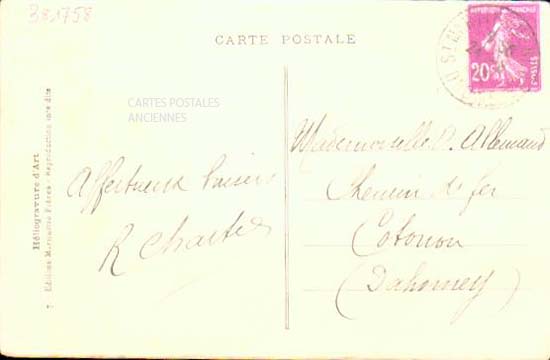 381758
CARTE POSTALE
REPUBLIQUE FRANÇAISE
20c
POSTES
CARTES POSTALES
ANCIENNES
Affectueux baisers
R Chartier
Mademoiselle D. Allemand
Chemin de fer
Cotonou
(Dahomey)
Héliogravure d'Art
7 Editions Marguerite Frères - Reproduction interdite